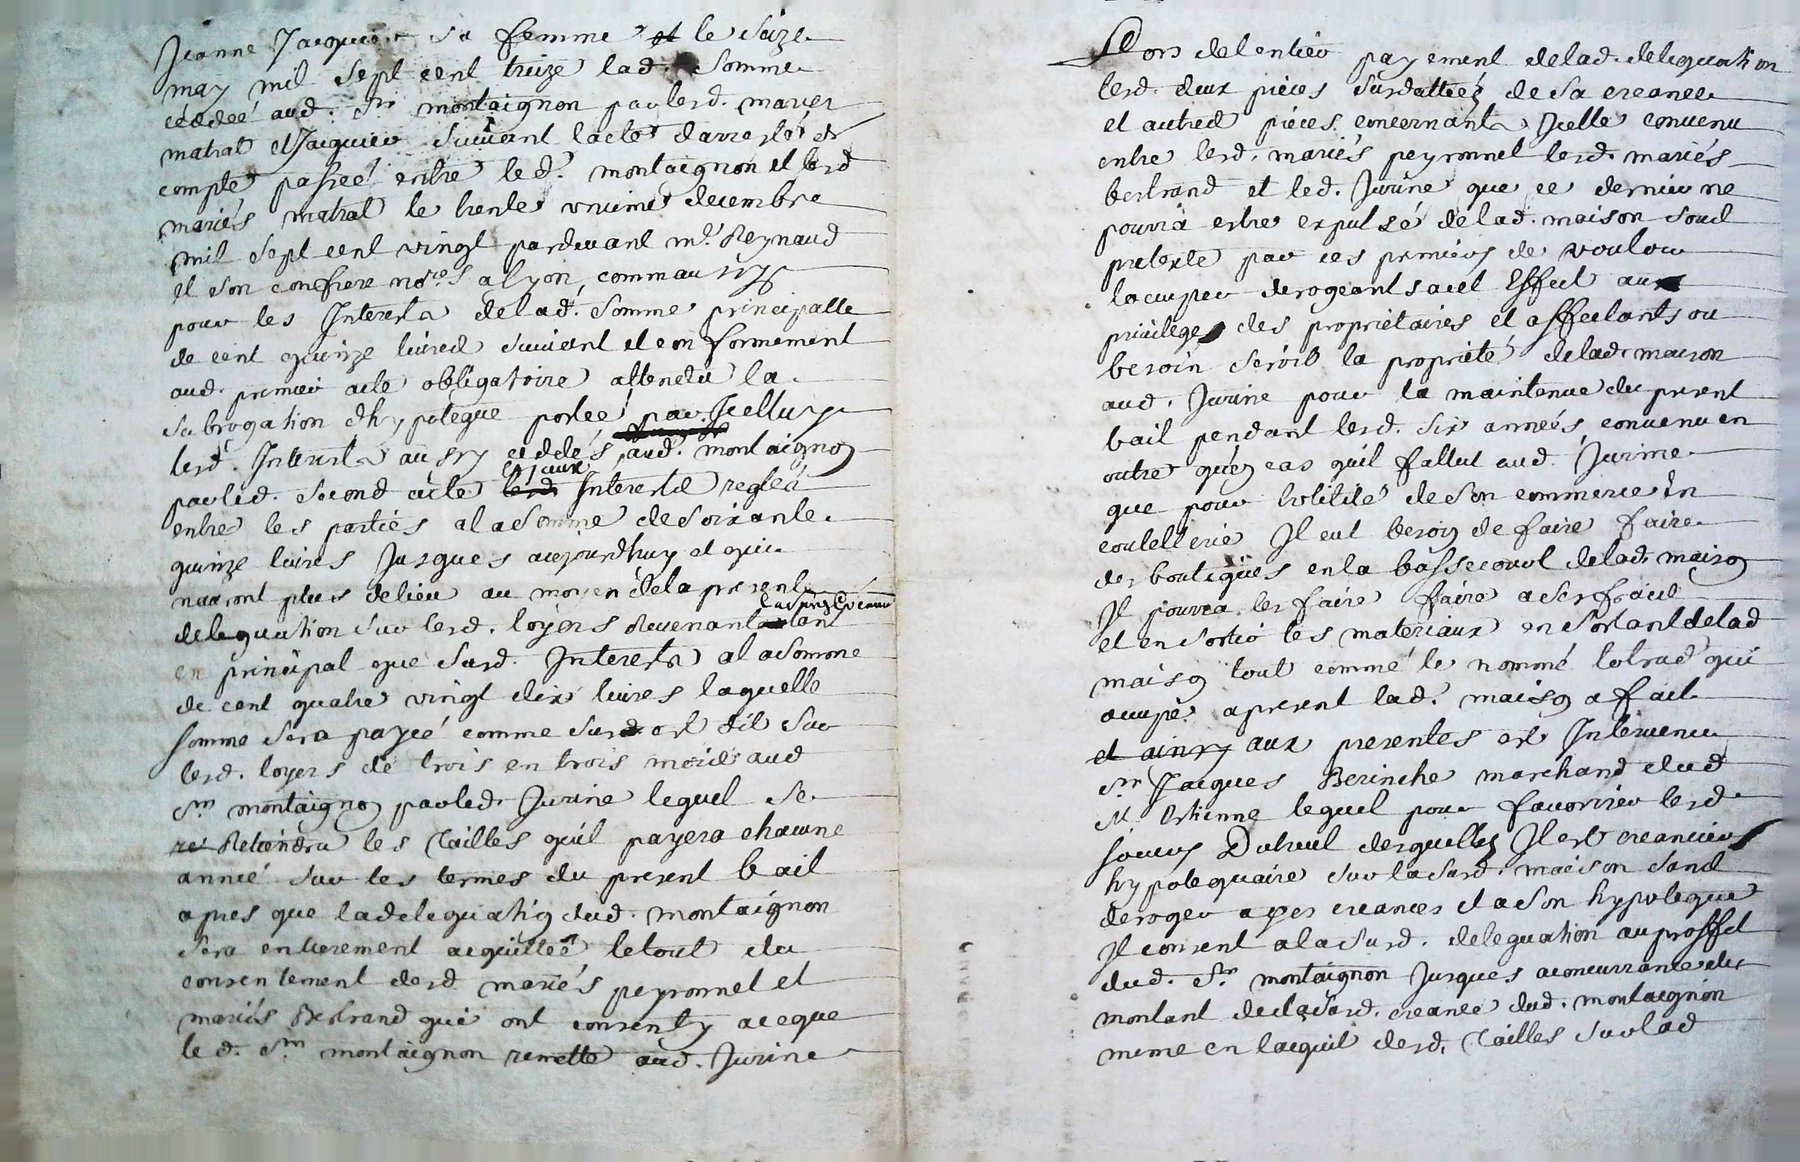 Jeanne Jacquier sa femme et le saize
may mil sept cent treize lad. somme
ceddée aud. Sr montaignon par lesd. mariés
matrat et Jacquier suivant lacte darresté de
compte passée entre led. montaignon et lesd
mariés matrat le trente unieme decembre
mil sept cent vingt pardevant me Reynaud
et son confrere nores a lyon, comm aussy
pour les Interests delad. somme principalle
de cent quinze livres suivant et conformement
aud. premier acte obligatoire attendu la
subrogation dhypoteque portée par Icelluy
lesd. Interests aussy ceddés aud. montaignon
par led. second acte lesd Iceux Interests reglés
entre les parties a la somme de soixante
quinze livres Jusques aujourdhuy et qui
nauront plus de lieu au moyen de la presente
deleguation sur lesd. loyers Revenant tant
en principal que surd. Interests a la somme
de cent quatre vingt dix livres laquelle
somme sera payée comme surd est dit sur
lesd. loyers de trois en trois mois aud
Sr montaignon par led. Jurine lequel se
re Retiendra les tailles quil payera chacune
année sur les termes du present bail
apres que la deleguation dud. montaignon
sera entierement acquittée le tout du
consentement desd mariés peyronnet et
mariés Bertrand qui ont consenty a ce que
led. Sr montaignon remette aud. Jurine
Lors de lentier payement delad. deleguation
lesd. deux pieces surdattées de sa creance
et autres pieces concernants Icelle convenu
entre lesd. mariés peyronnet lesd. mariés
bertrand et led. Jurine que ce dernier ne
pourra estre expulsé delad. maison soud
pretexte par ces premiers de vouloir
loccuper derogeants a cet Effect au
privilege des proprietaires et affectants ou
besoin seroit la proprieté delad. maison
aud. Jurine pour la maintenue du present
bail pendant lesd. six années convenu en
outre quen cas quil fallut aud. Jurine
que pour lutilité de son commerce en
coutellerie Il eut besoin de faire faire
des boutiques en la basse court delad. maison
Il pourra les faire faire a ses frais
et en sortir les materiaux en sortant delad
maison tout comme le nommé qui
occupe a present lad. maison a fait
et ainsy aux presentes est Intervenu
Sr Jacques Berinche marchand dud
St Estienne lequel pour favoriser lesd
soeurs Dutreul desquelles Il est creancier
hypotequaire sur la surd. maison sand
deroger a ses creances et a son hypoteque
Il consent a la surd. deleguation au proffit
dud. Sr montaignon Jusques a concurrance du
montant de la surd. creance dud. montaignon
meme en lacquit desd. tailles sur lad